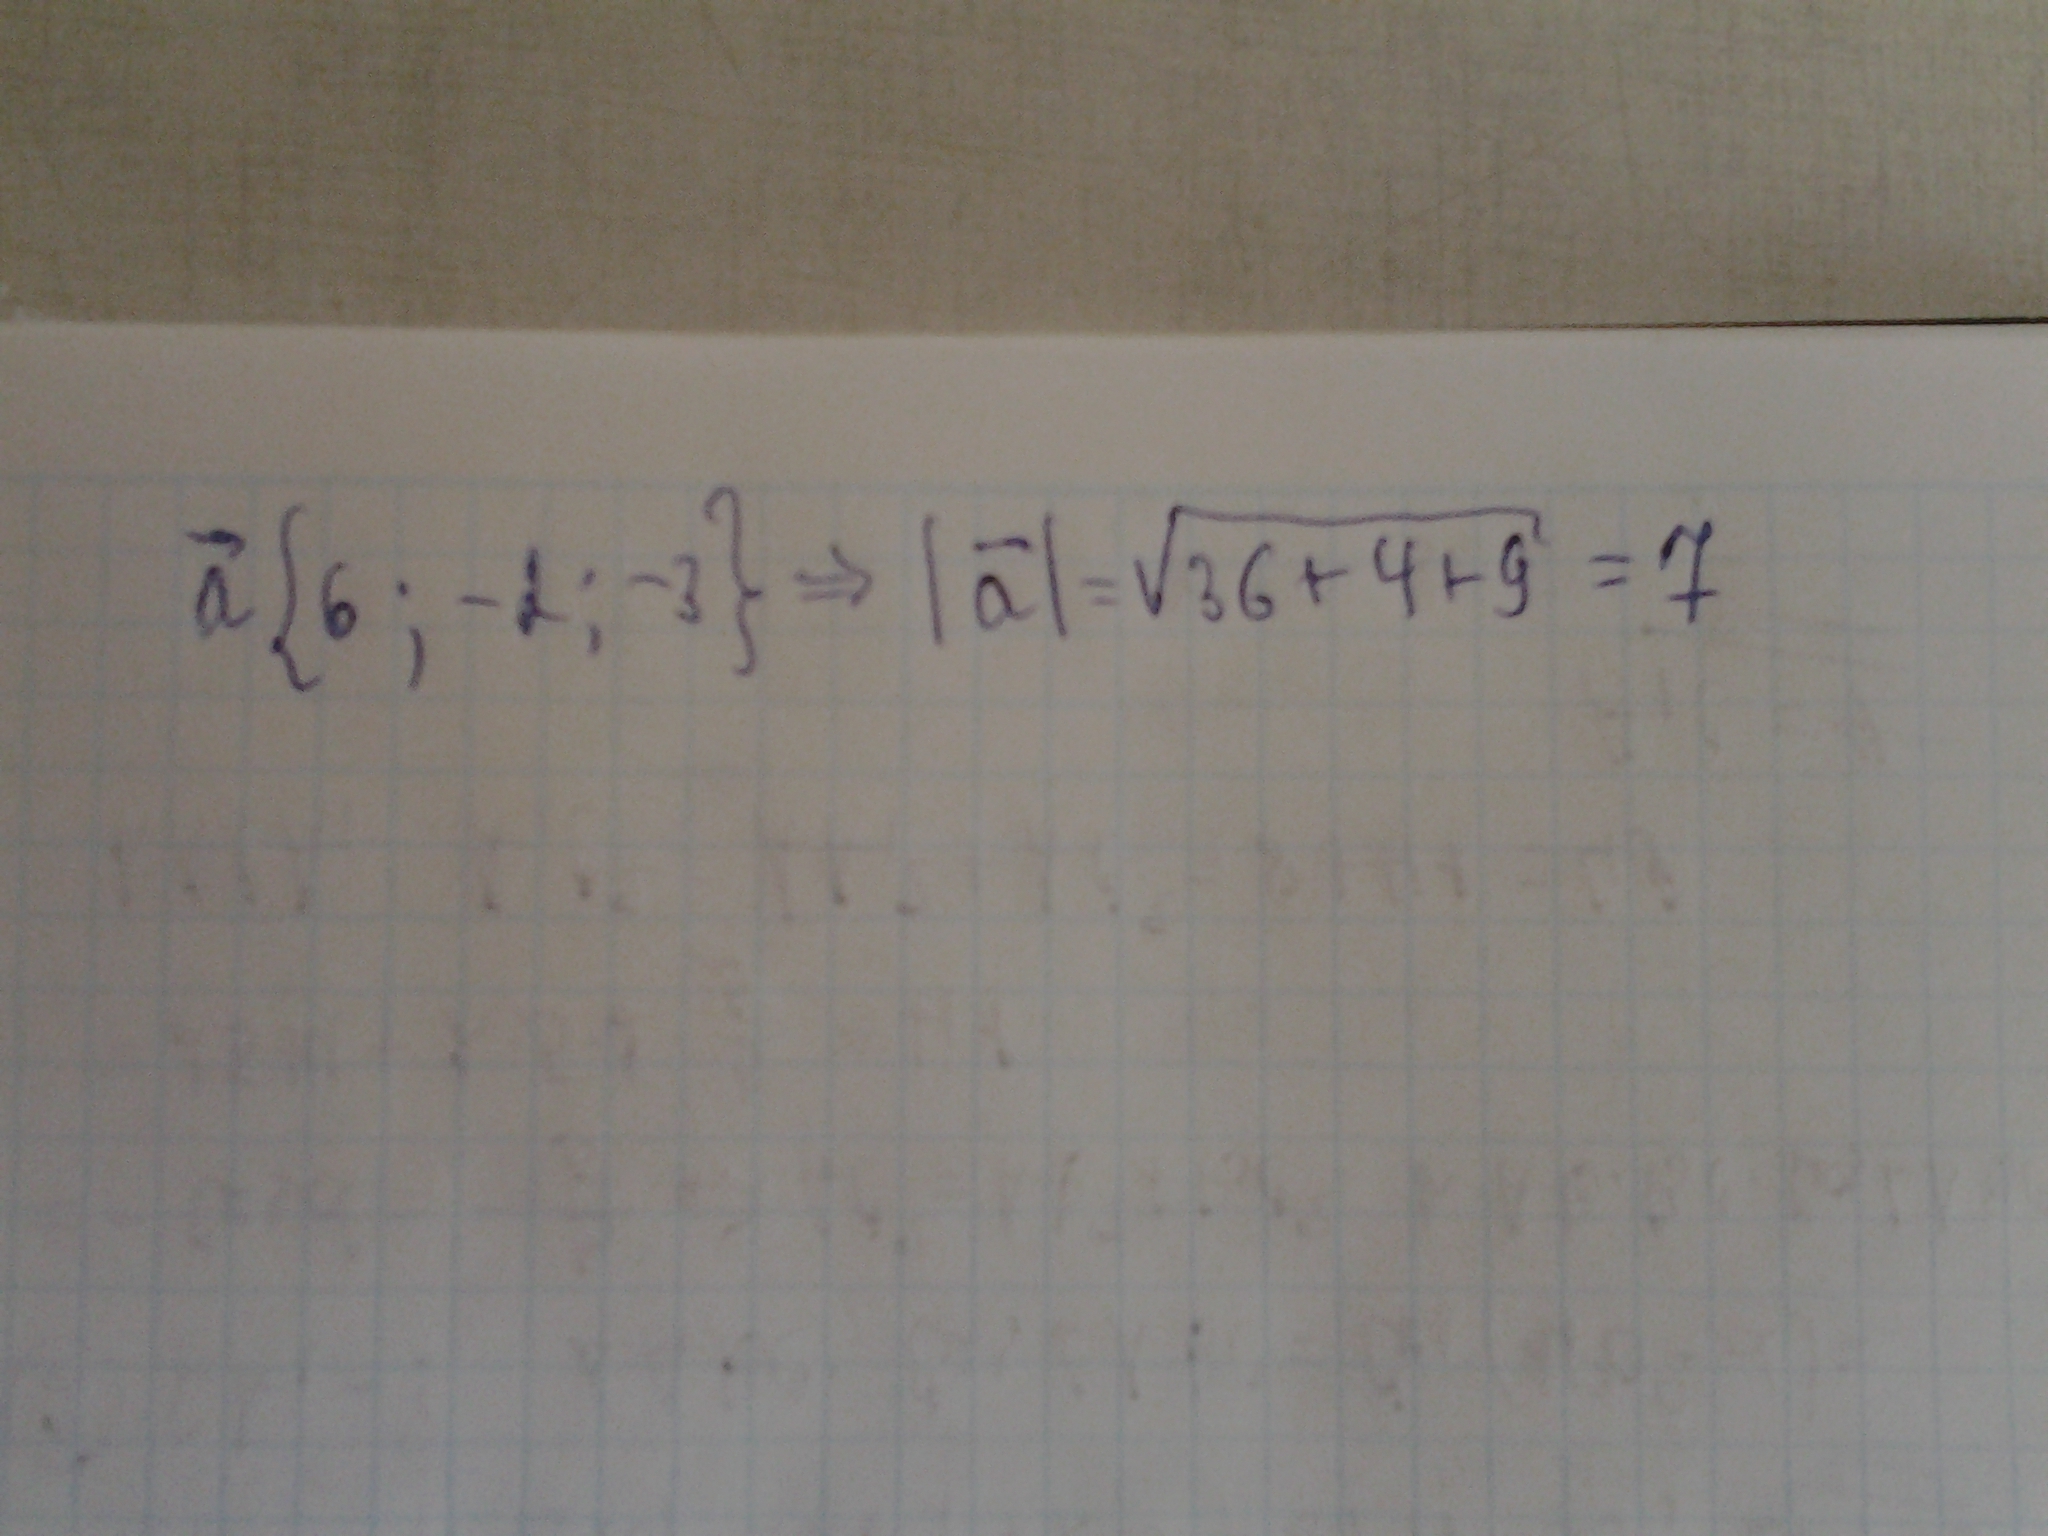 a⃗{6; -2; -3} ⇒ |a⃗| = √36+4+9 = 7